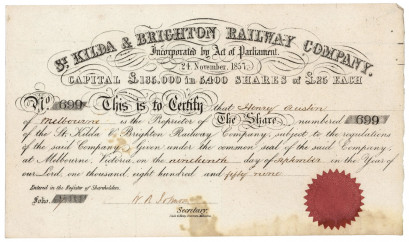 ST KILDA & BRIGHTON RAILWAY COMPANY.
Incorporated by Act of Parliament.
24 November, 1857.
CAPITAL £135,000 in 5400 SHARES of £25 EACH
No. 699 This is to Certify that Henry
of Melbourne is the Proprietor of The Share numbered 699
of the St. Kilda & Brighton Railway Company, subject to the regulations
of the said Company. Given under the common seal of the said Company,
at Melbourne, Victoria, on the nineteenth day of September in the Year of
our Lord, one thousand, eight hundred and fifty nine
Entered in the Register of Shareholders.
Folio
Secretary.